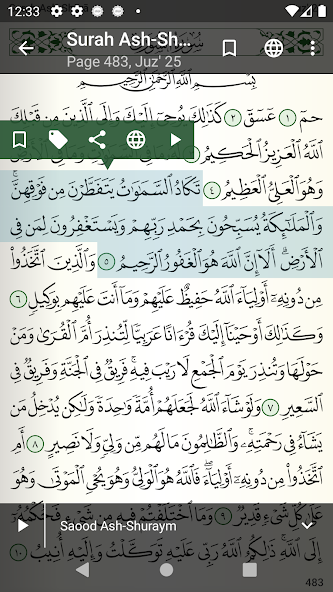 12:33
Surah Ash-Sh...
Page 483, Juz' 25
بِسْمِ اللَّهِ الرَّحْمَٰنِ الرَّحِيمِ
حمٓ ١ عٓسٓقٓ ٢ كَذَٰلِكَ يُوحِيٓ إِلَيْكَ وَإِلَى ٱلَّذِينَ مِن قَبْلِكَ
ٱللَّهُ ٱلْعَزِيزُ ٱلْحَكِيمُ
وَهُوَ ٱلْعَلِيُّ ٱلْعَظِيمُ ٤ تَكَادُ ٱلسَّمَٰوَٰتُ يَتَفَطَّرْنَ مِن فَوْقِهِنَّۚ
وَٱلْمَلَٰٓئِكَةُ يُسَبِّحُونَ بِحَمْدِ رَبِّهِمْ وَيَسْتَغْفِرُونَ لِمَن فِي
ٱلْأَرْضِۗ أَلَآ إِنَّ ٱللَّهَ هُوَ ٱلْغَفُورُ ٱلرَّحِيمُ ٥ وَٱلَّذِينَ ٱتَّخَذُوا۟
مِن دُونِهِۦٓ أَوْلِيَآءَ ٱللَّهُ حَفِيظٌ عَلَيْهِمْ وَمَآ أَنتَ عَلَيْهِم بِوَكِيلٍ
٦ وَكَذَٰلِكَ أَوْحَيْنَآ إِلَيْكَ قُرْءَانًا عَرَبِيًّا لِّتُنذِرَ أُمَّ ٱلْقُرَىٰ وَمَنْ
حَوْلَهَا وَتُنذِرَ يَوْمَ ٱلْجَمْعِ لَا رَيْبَ فِيهِۚ فَرِيقٌ فِي ٱلْجَنَّةِ وَفَرِيقٌ فِي
ٱلسَّعِيرِ ٧ وَلَوْ شَآءَ ٱللَّهُ لَجَعَلَهُمْ أُمَّةً وَٰحِدَةً وَلَٰكِن يُدْخِلُ مَن
يَشَآءُ فِي رَحْمَتِهِۦۚ وَٱلظَّٰلِمُونَ مَا لَهُم مِّن وَلِيٍّ وَلَا نَصِيرٍ ٨
أَمِ ٱتَّخَذُوا۟ مِن دُونِهِۦٓ أَوْلِيَآءَۖ فَٱللَّهُ هُوَ ٱلْوَلِيُّ وَهُوَ يُحْيِ ٱلْمَوْتَىٰ وَهُوَ
عَلَىٰ كُلِّ شَيْءٍ قَدِيرٌ ٩ وَمَا ٱخْتَلَفْتُمْ فِيهِ مِن شَيْءٍ فَحُكْمُهُۥٓ
إِلَى ٱللَّهِۚ ذَٰلِكُمُ ٱللَّهُ رَبِّي عَلَيْهِ تَوَكَّلْتُ وَإِلَيْهِ أُنِيبُ ١٠
Saood Ash-Shuraym
483